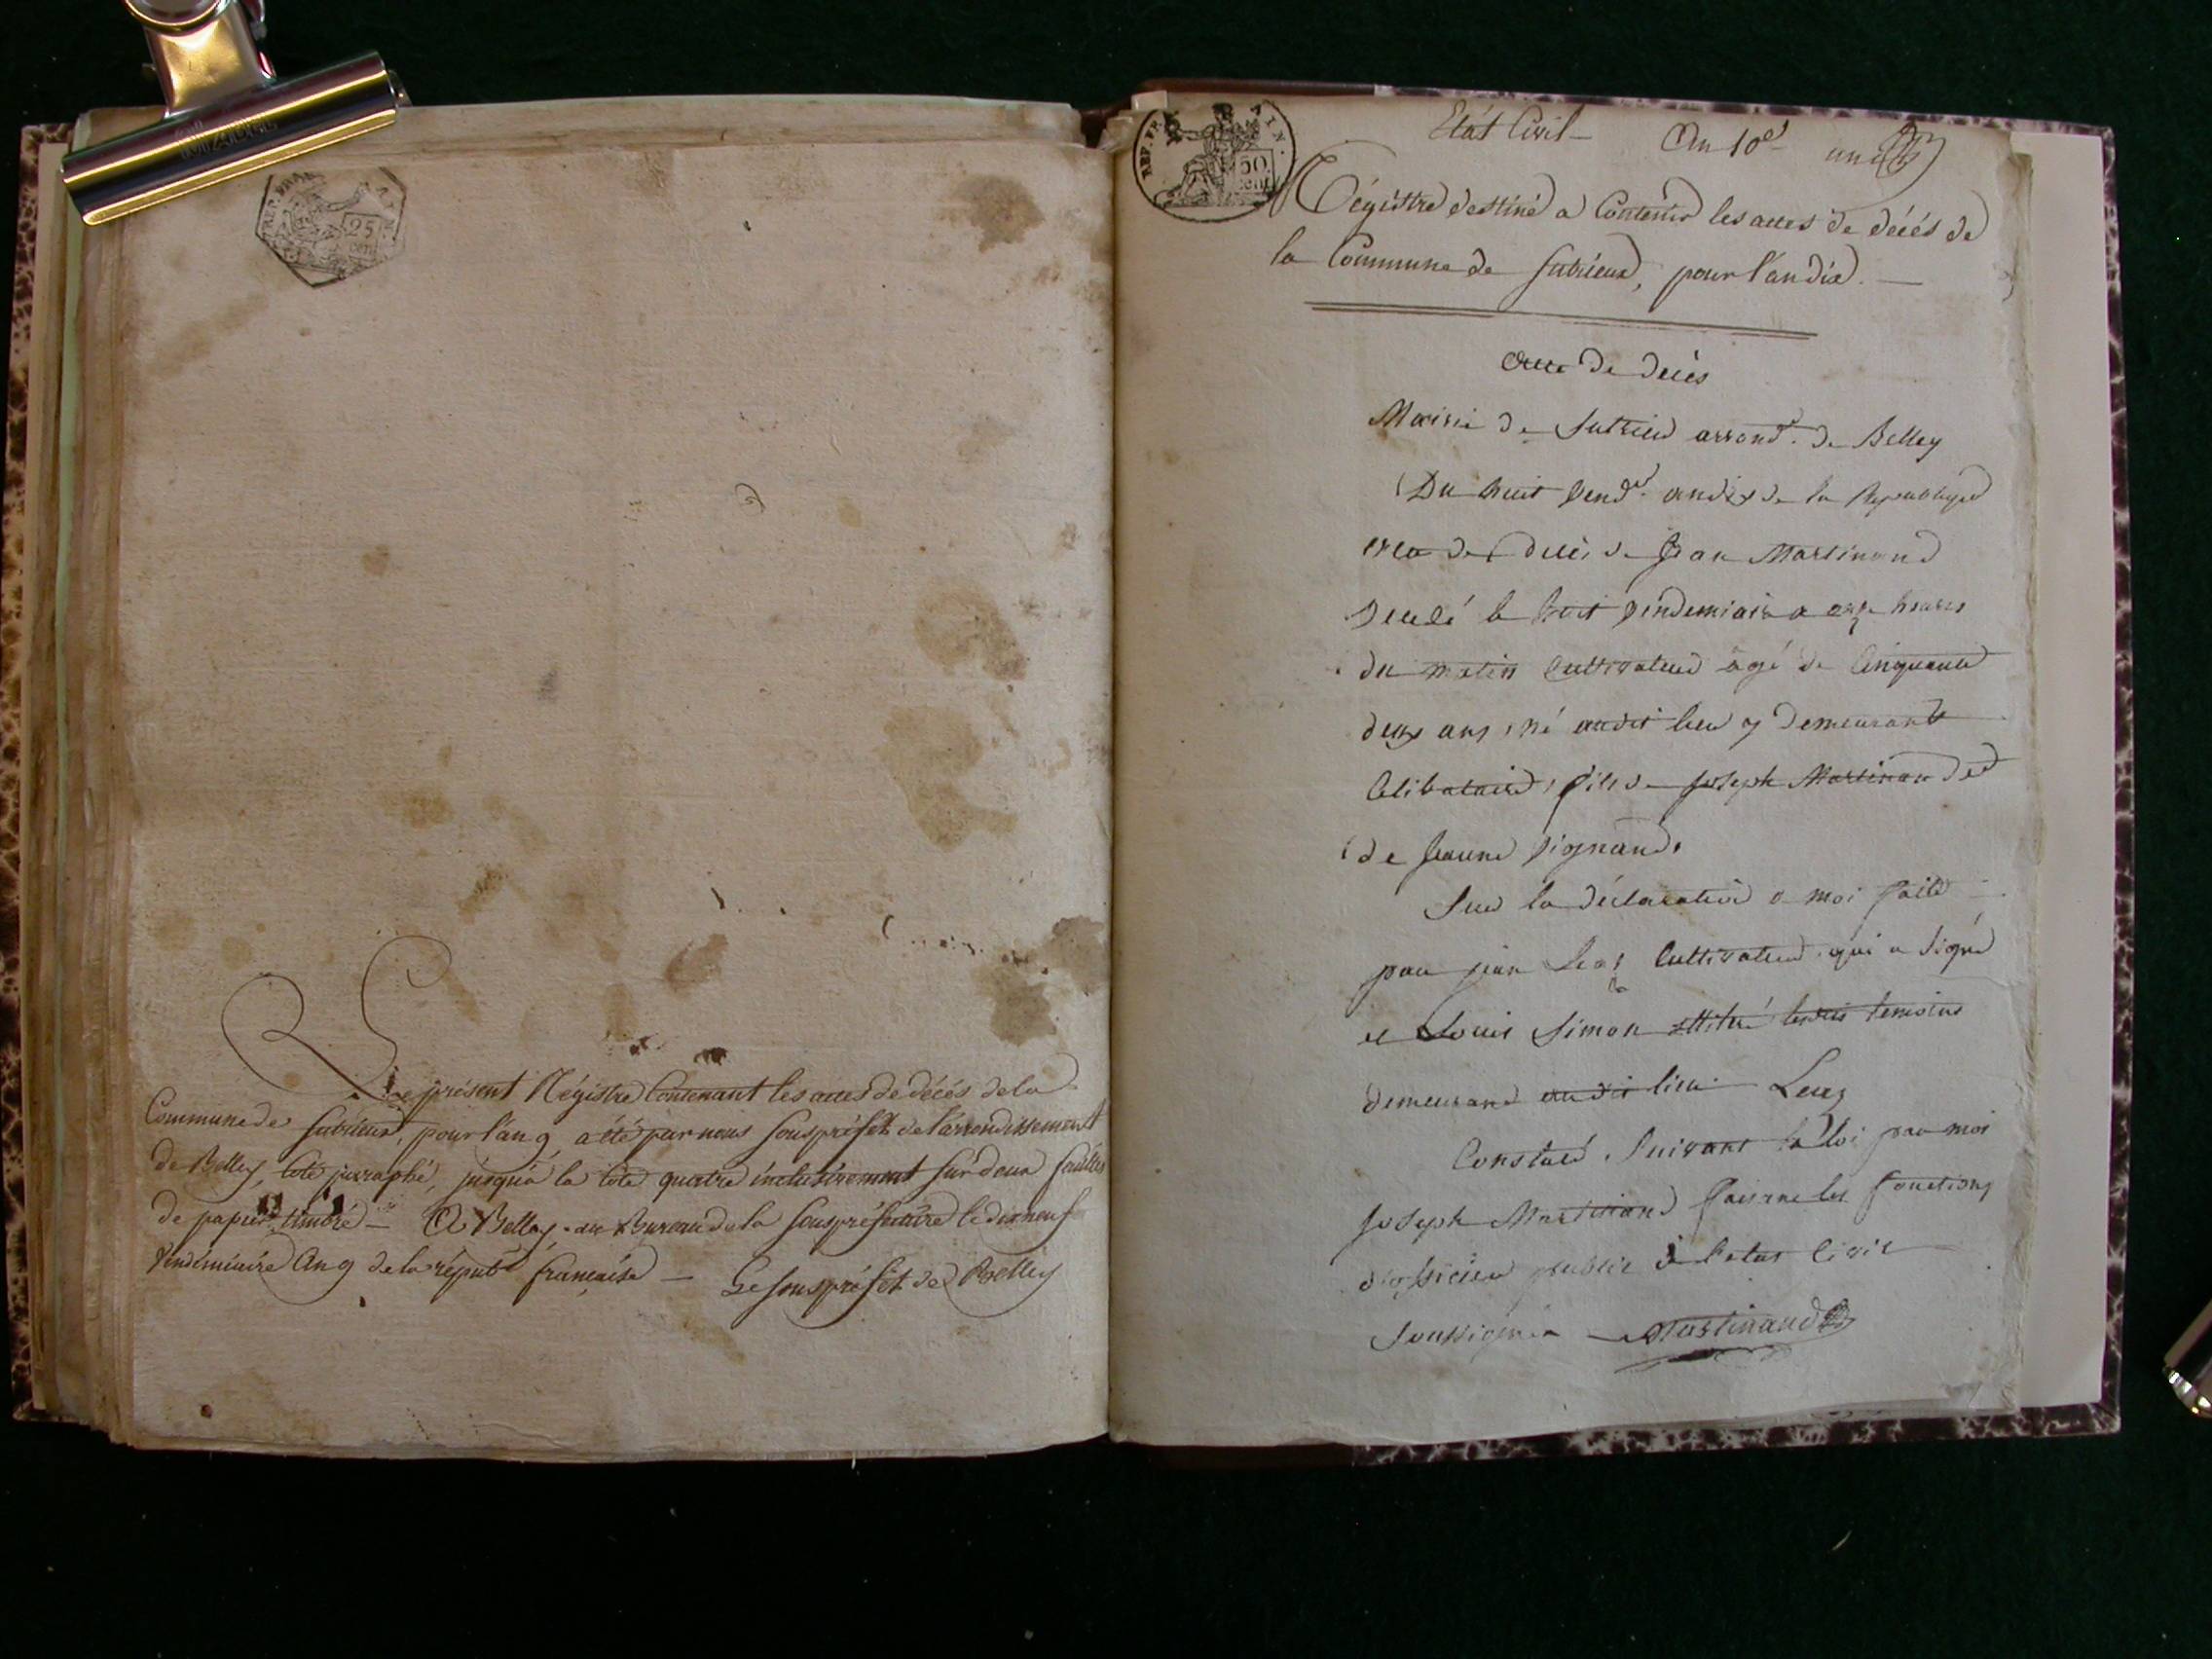 REP. FRA
AIN
25
cent
Le présent Régistre Contenant les actes de décés de la
Commune de Sutrieux, pour l'an 9, a été par nous Souspréfet de l'arrondissement
de Belley, coté paraphé, jusqu'à la cote quatre inclusivement sur deux feuilles
de papier timbré — A Belley, au Bureau de la Souspréfecture le dix neuf
Vendémiaire An 9 de la répub.e française — Le souspréfet de Belley
REP. FRA
AIN.
50
cent
Etat Civil — An 10e
Régistre destiné a Contenir les actes de décés de
la Commune de Sutrieux, pour l'an dix. —
Acte de decès
Mairie de Sutrieu arrond.t de Belley
Du huit Vend.re an dix de la Republique
acte de decès de Jean Martinand
decedé le huit Vendemiaire a onze heures
du matin Cultivateur âgé de Cinquante
deux ans, né audit lieu y demeurant
Celibataire, fils de Joseph Martinand et
de Jeanne Vignand,
Sur la déclaration a moi faite
par jean Cultivateur qui a signé
et Louis Simon temoins
demeurant audit lieu
Constaté, Suivant la loi par moi
Joseph Martinand faisant les fonctions
d'officier public de l'etat Civil
Soussigné Martinand